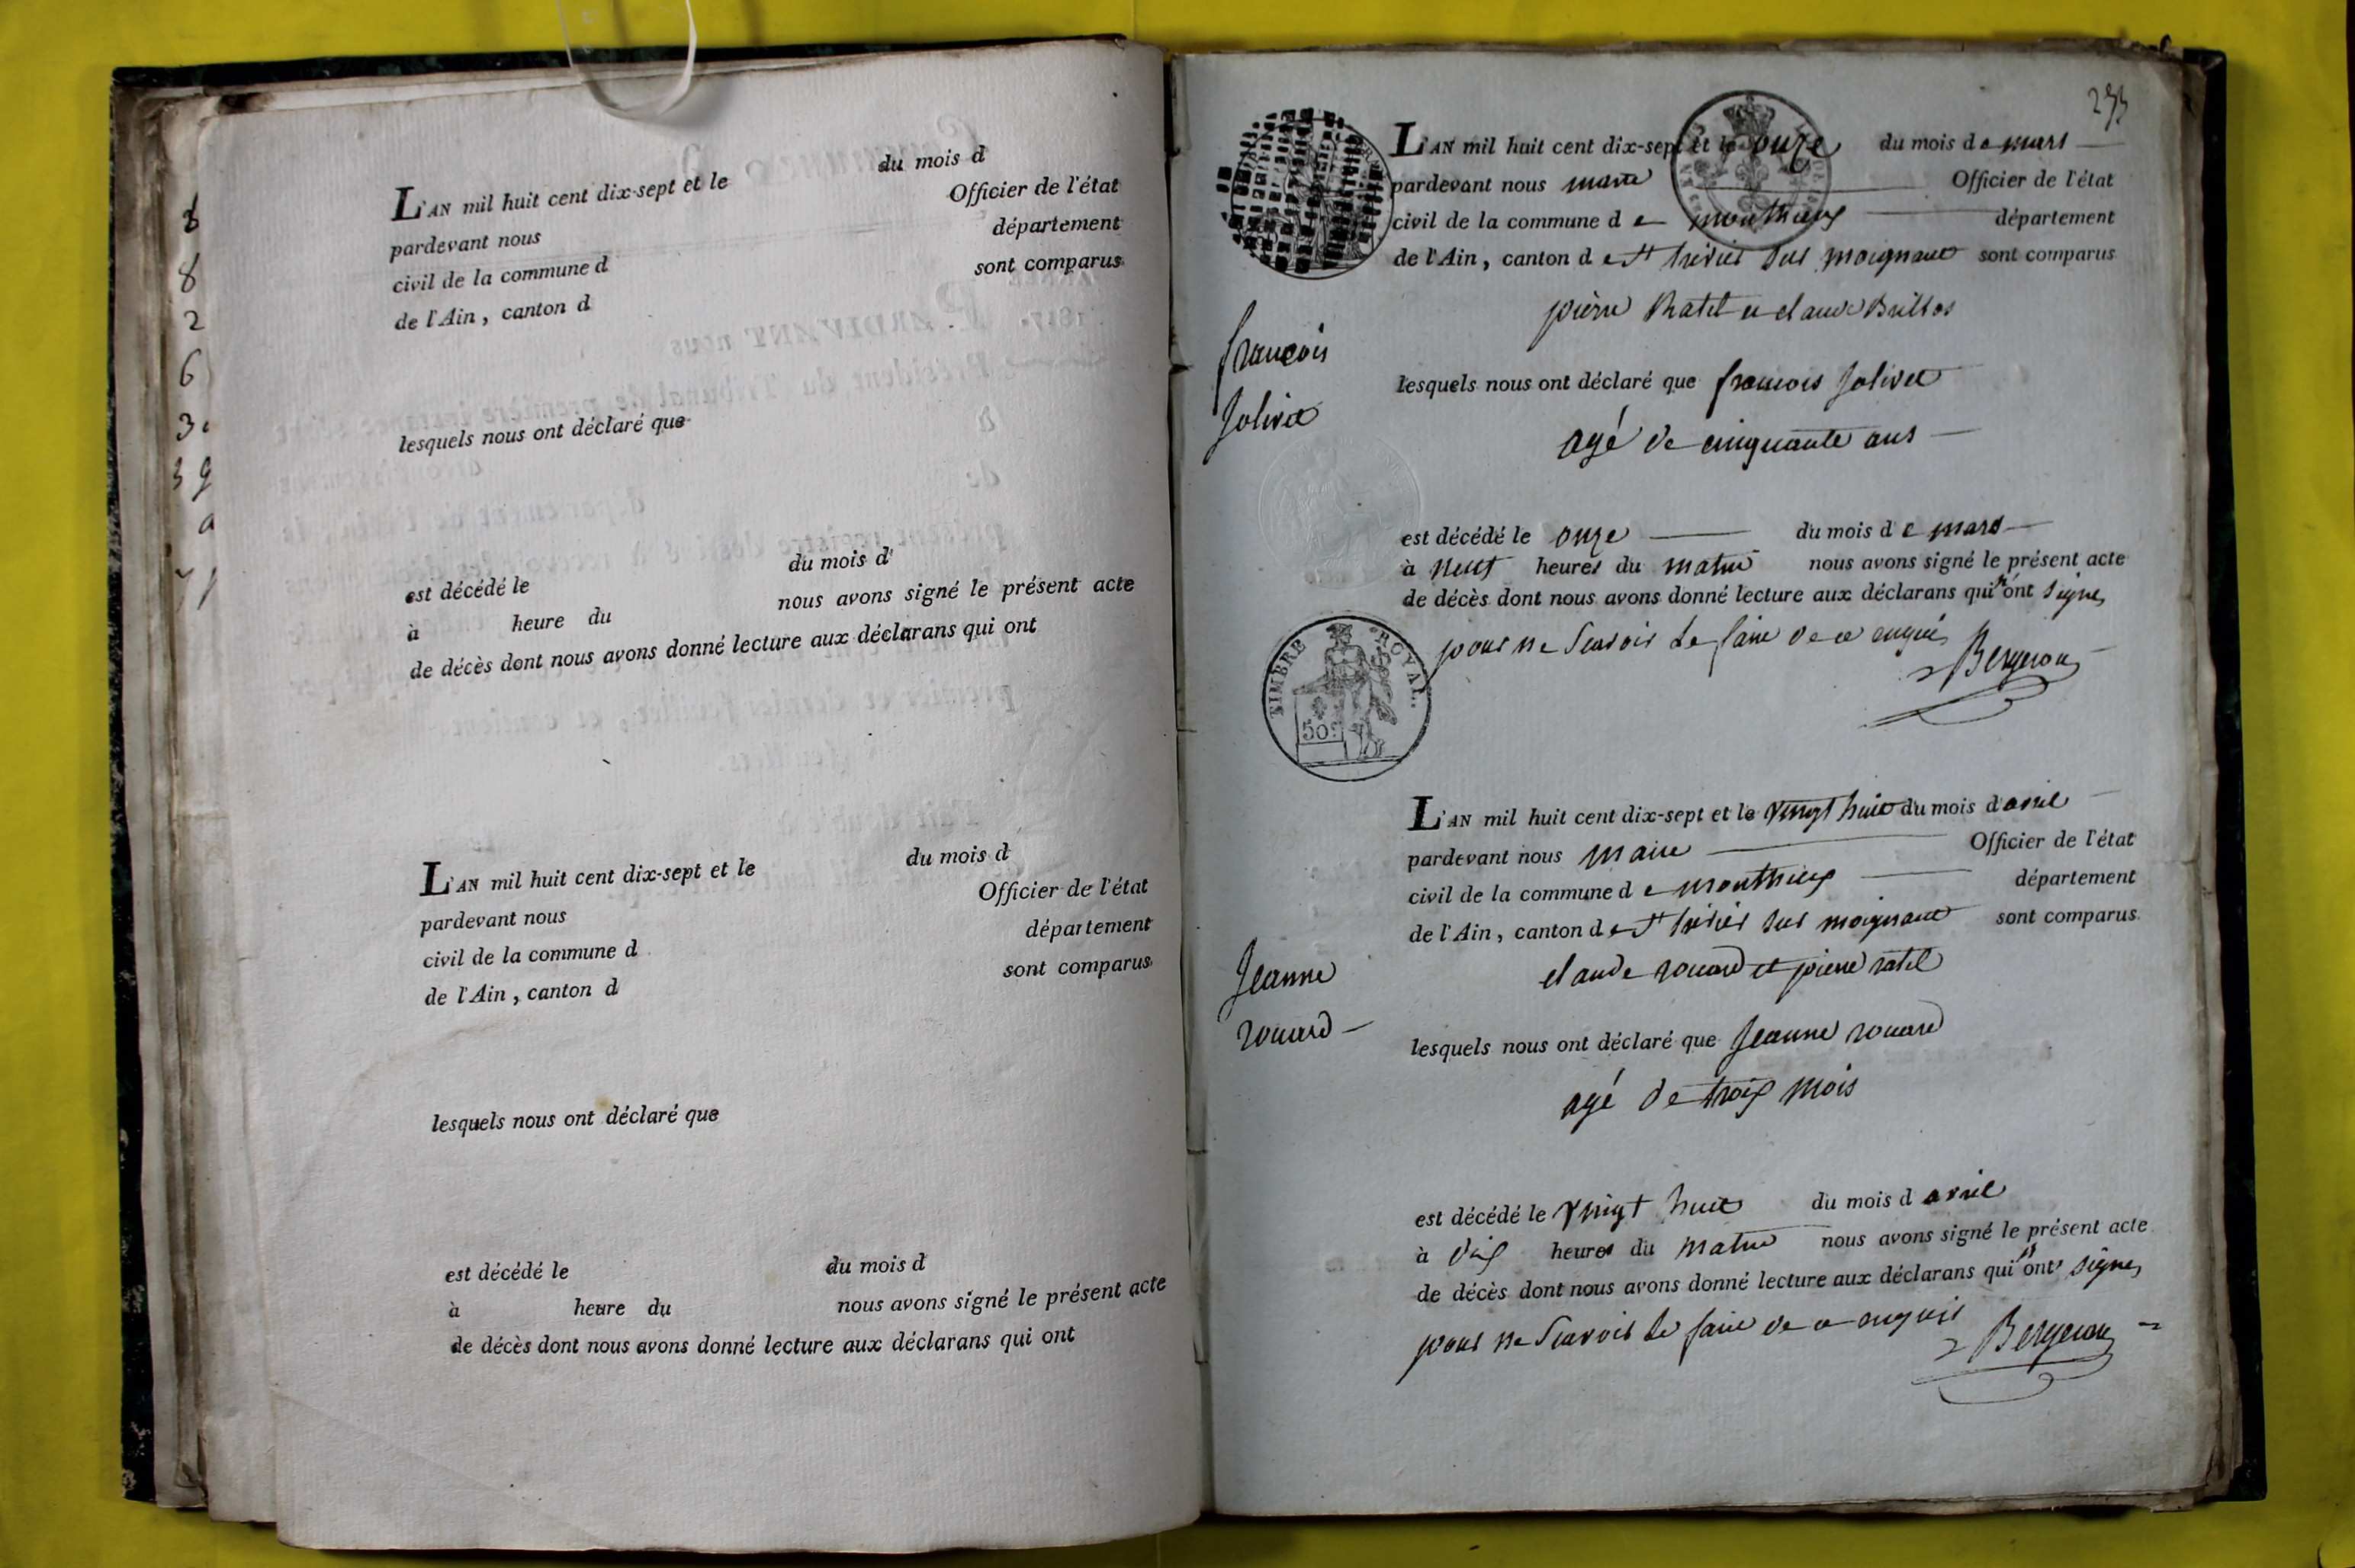 8
8
2
6
3.
39
a
L'AN mil huit cent dix-sept et le du mois d
pardevant nous Officier de l'état
civil de la commune d département
de l'Ain, canton d sont comparus
lesquels nous ont déclaré que
est décédé le du mois d
à heure du nous avons signé le présent acte
de décès dont nous avons donné lecture aux déclarans qui ont
L'AN mil huit cent dix-sept et le du mois d
pardevant nous Officier de l'état
civil de la commune d département
de l'Ain, canton d sont comparus
lesquels nous ont déclaré que
est décédé le du mois d
à heure du nous avons signé le présent acte
de décès dont nous avons donné lecture aux déclarans qui ont
L'AN mil huit cent dix-sept et le onze du mois de mars
pardevant nous maire Officier de l'état
civil de la commune de monthieux département
de l'Ain, canton de St trivier sur moignans sont comparus
pierre Ratel et claude
francois
Jolivet
lesquels nous ont déclaré que francois Jolivet
agé de cinquante ans
est décédé le onze du mois de mars
à neuf heures du matin nous avons signé le présent acte
de décès dont nous avons donné lecture aux déclarans qui n'ont signé
pour ne scavoir le faire de ce enquis
Bergeron
TIMBRE ROYAL.
50c
L'AN mil huit cent dix-sept et le vingt huit du mois d'avril
pardevant nous maire Officier de l'état
civil de la commune de monthieux département
de l'Ain, canton de St trivier sur moignans sont comparus
claude rouard et pierre ratel
Jeanne
rouard
lesquels nous ont déclaré que Jeanne rouard
agé de trois mois
est décédé le vingt huit du mois d avril
à dix heures du matin nous avons signé le présent acte
de décès dont nous avons donné lecture aux déclarans qui n'ont signé
pour ne scavoir le faire de ce enquis
Bergeron